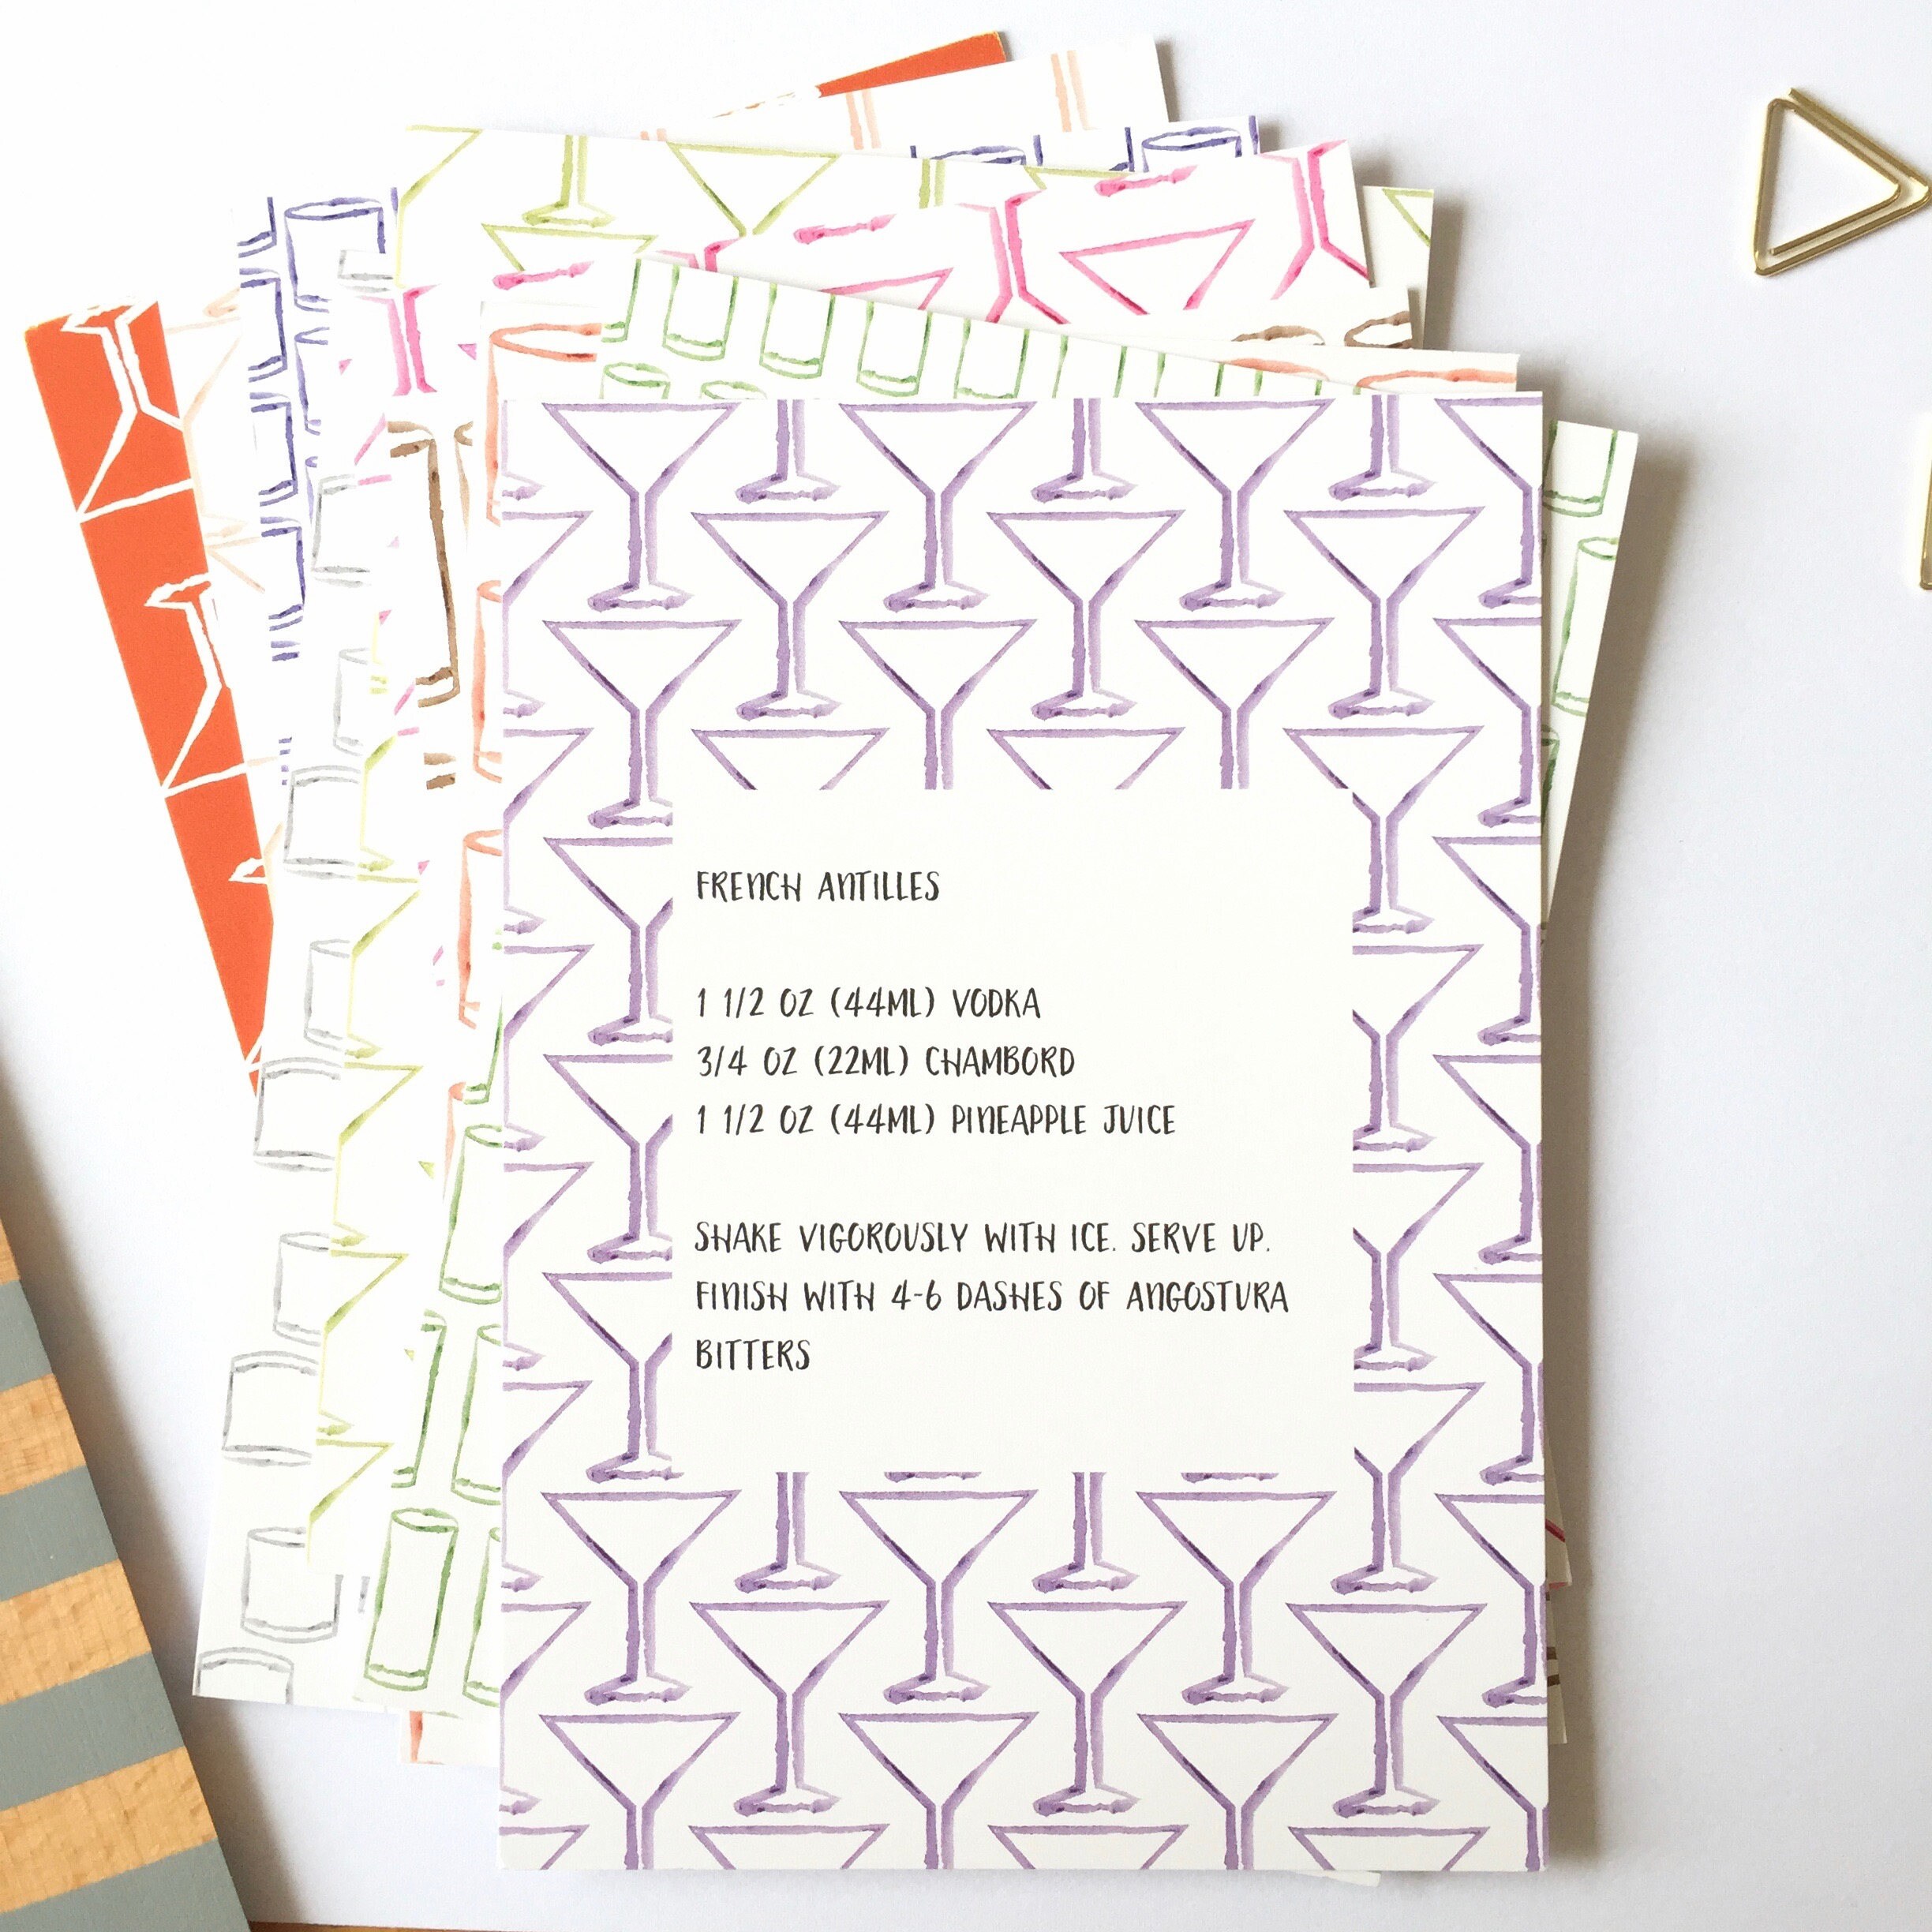 FRENCH ANTILLES
1 1/2 OZ (44ML) VODKA
3/4 OZ (22ML) CHAMBORD
1 1/2 OZ (44ML) PINEAPPLE JUICE
SHAKE VIGOROUSLY WITH ICE. SERVE UP.
FINISH WITH 4-6 DASHES OF ANGOSTURA
BITTERS